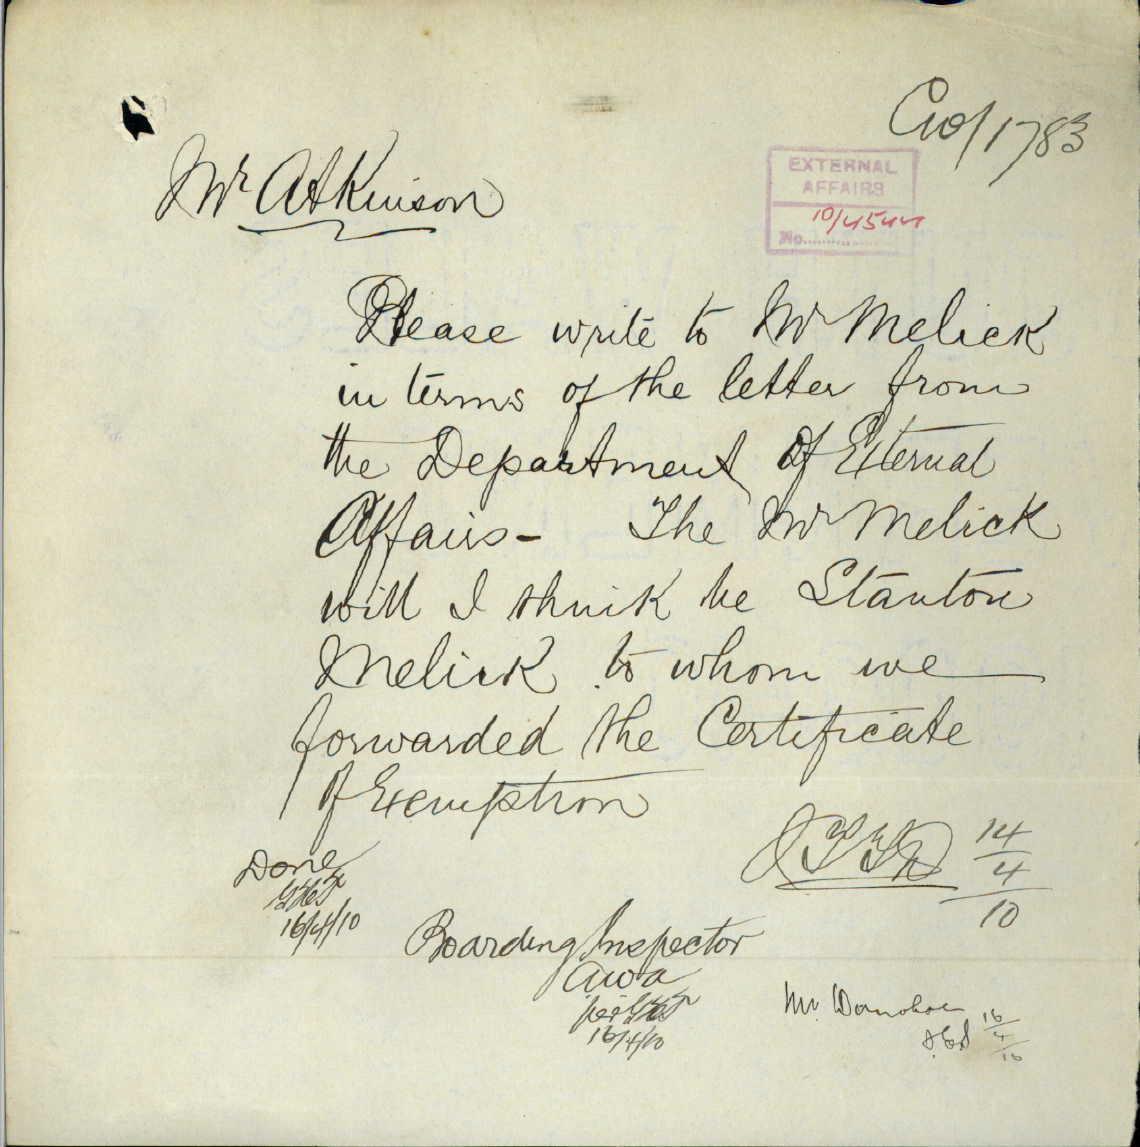 C10/1783
EXTERNAL
AFFAIRS
No. 10/4544
Mr Atkinson
Please write to Mr Melick
in terms of the letter from
the Department of External
Affairs - The Mr Melick
will I think be Stanton
Melick to whom we
forwarded the Certificate
of Exemption
14/4/10
Done
16/4/10
Boarding Inspector
per
16/4/10
Mr. Donohoe
16/4/10